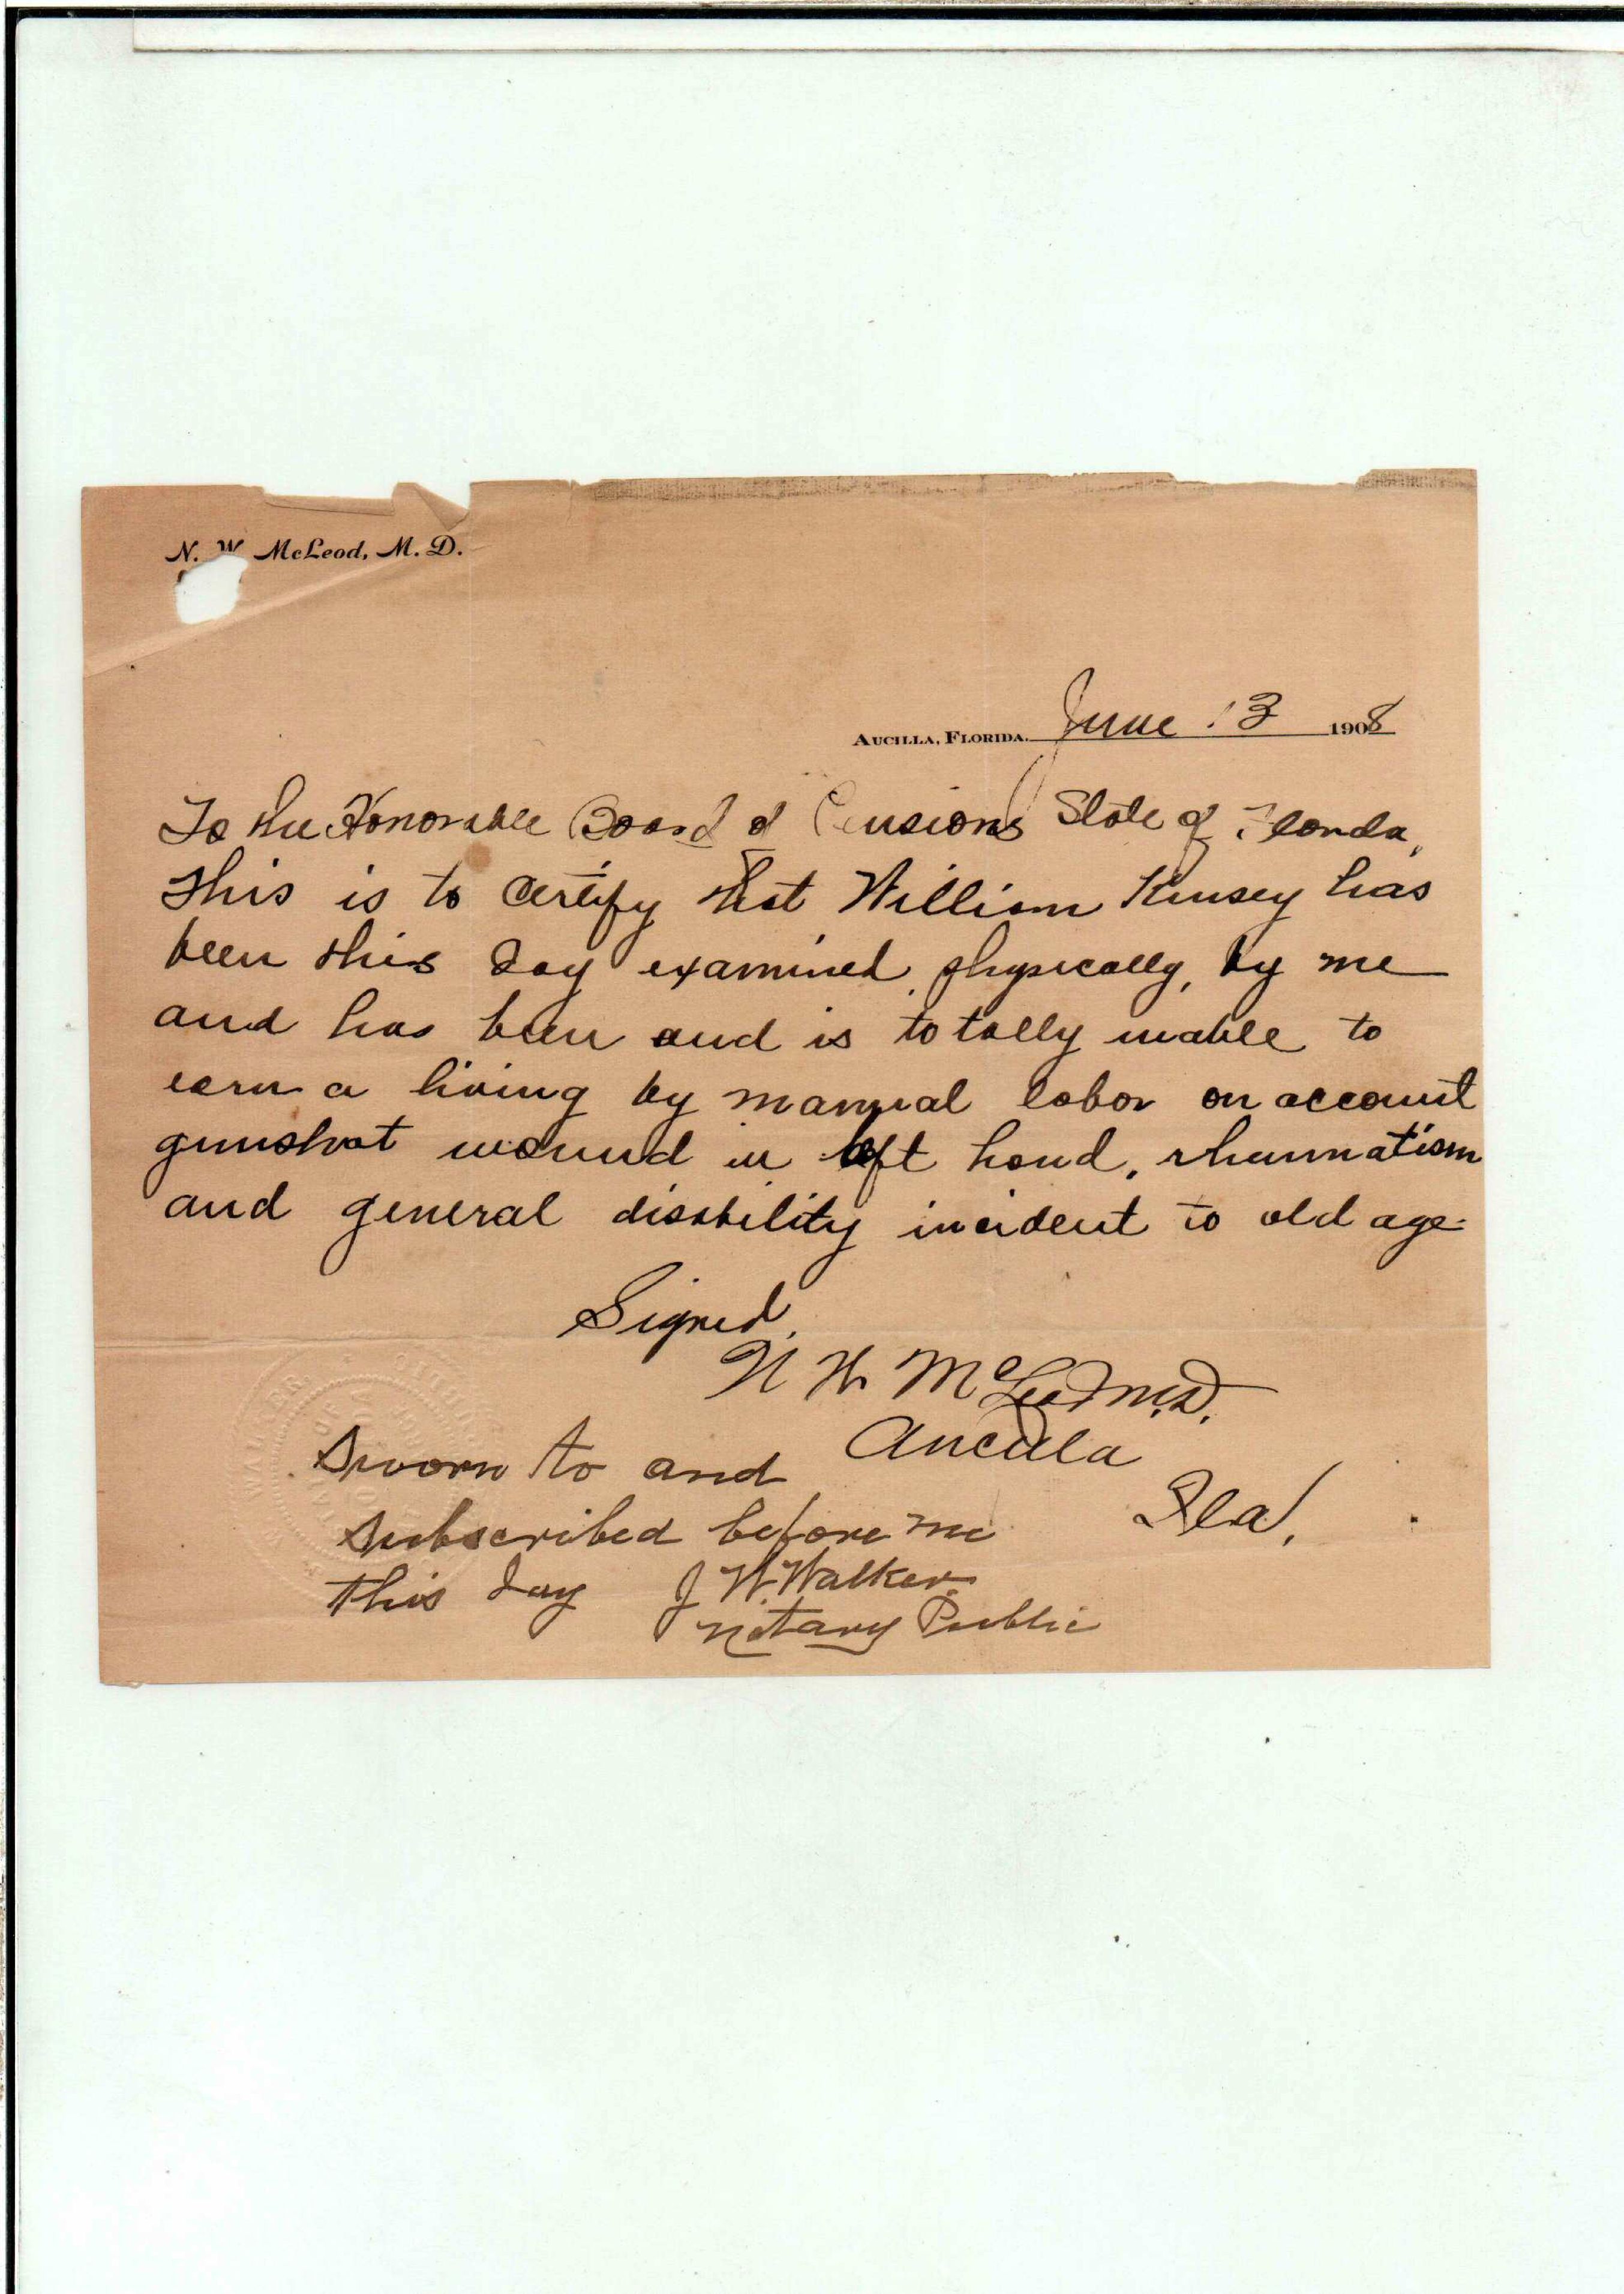 N. W. McLeod, M. D.
AUCILLA, FLORIDA. June 13 1908
To the Honorable Board of Pensions State of Florida,
This is to certify that William Kinsey has
been this day examined, physically, by me
and has been and is totally unable to
earn a living by manual labor on account
gunshot wound in left hand, rheumatism
and general disability incident to old age.
Signed,
N W McLeod M.D.
Aucilla
Fla.
Sworn to and
subscribed before me
this day J W Walker
Notary Public